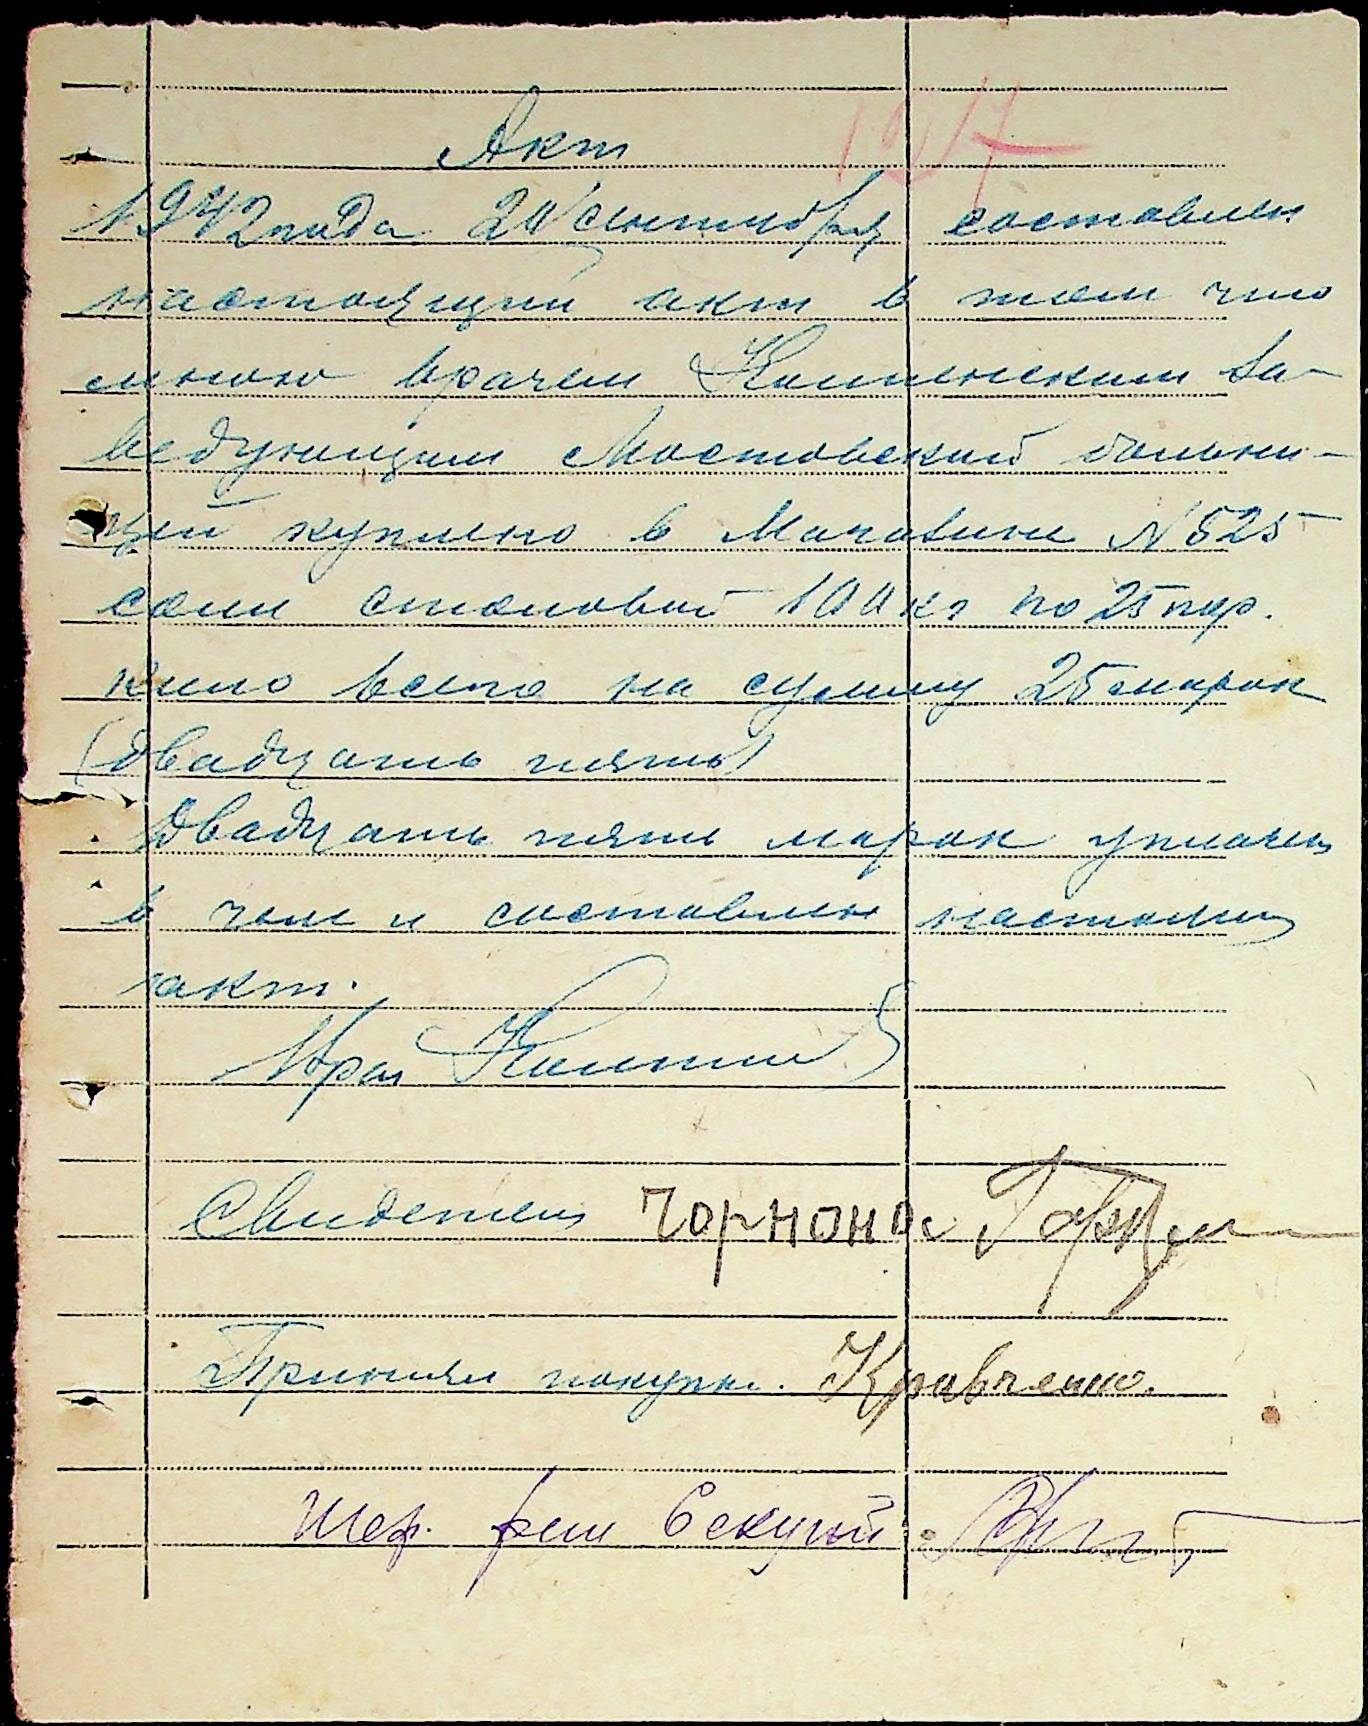 Акт
1942 года 20 сентября составлен
настоящий акт в том что
мною врачем за-
ведующим Мостовской больни-
цей куплено в Магазине N 525
соли столовой 100 кг по 25 пф.
кило всего на сумму 25 марок
(двадцать пять)
Двадцать пять марок уплачен
в чем и составлен настоящ
акт.
Врач
Свидетель Чорнона
Принял покупк. Кравченко.
Шеф.